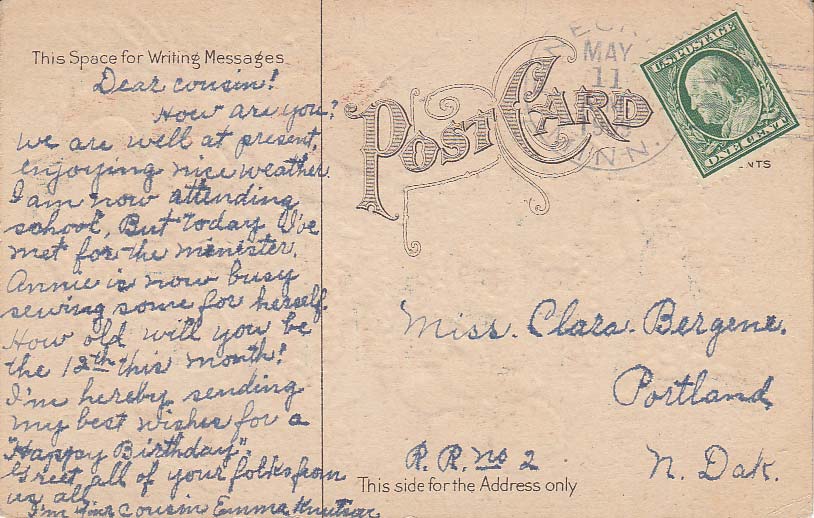 This Space for Writing Messages
Dear cousin!
How are you?
we are well at present,
enjoying nice weather.
I am now attending
school, But today I've
met for the minister.
Annie is now busy
sewing some for herself.
How old will you be
the 12th this month!
I'm hereby sending
my best wishes for a
"Happy Birthday".
Greet all of your folks from
us all.
I'm your cousin Emma
POST CARD
MAY
11
MINN.
U.S. POSTAGE
ONE CENT
NTS
Miss. Clara. Bergene.
Portland,
R. R. no 2
N. Dak.
This side for the Address only